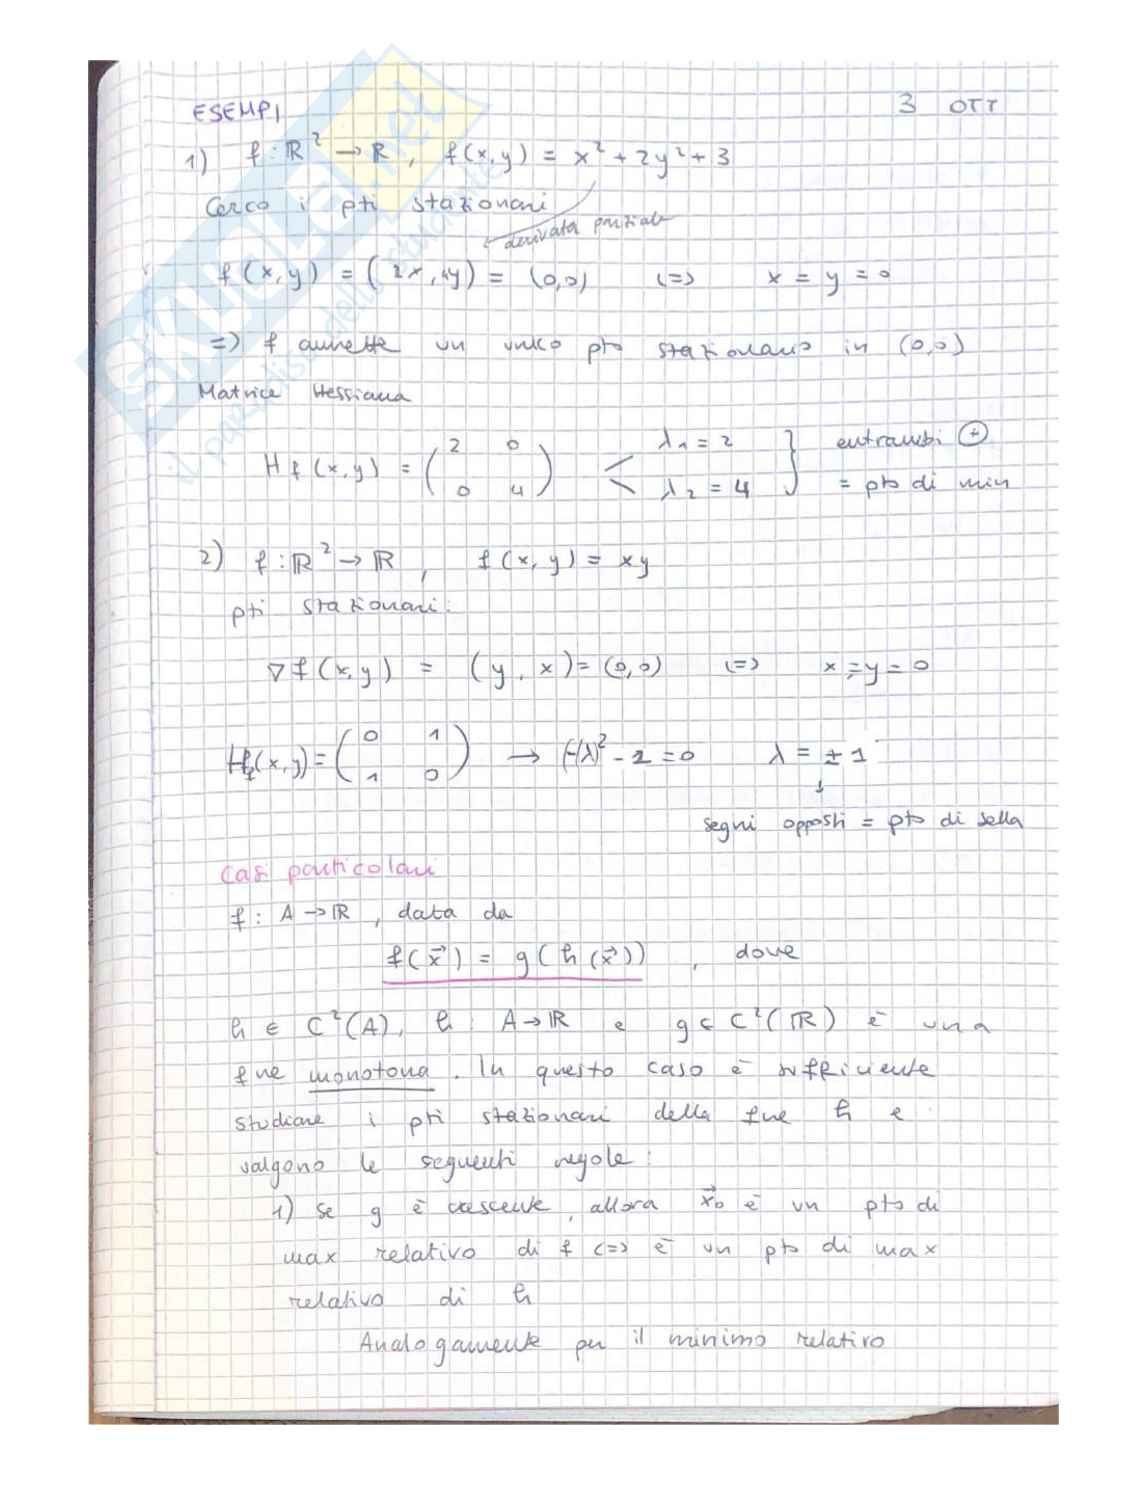 ESEMPI 3 OTT
1) f : ℝ² → ℝ , f(x,y) = x² + 2y² + 3
Cerco i pti stazionari
derivata parziale
f(x,y) = (2x, 4y) = (0,0) (=) x = y = 0
=) f ammette un unico pto stazionario in (0,0)
Matrice Hessiana
Hf(x,y) = (2 0
0 4) < λ1 = 2
λ2 = 4 } entrambi ⊕
= pto di min
2) f : ℝ² → ℝ , f(x,y) = xy
pti stazionari:
∇f(x,y) = (y, x) = (0,0) (=) x = y = 0
Hf(x,y) = (0 1
1 0) → (-λ)² - 1 = 0 λ = ± 1
↓
segni opposti = pto di sella
Casi particolari
f : A → ℝ , data da
f(x⃗) = g(h(x⃗)) , dove
h ∈ C²(A), h : A → ℝ e g ∈ C²(ℝ) è una
fne monotona. In questo caso è sufficiente
studiare i pti stazionari della fne h e
valgono le seguenti regole:
1) se g è crescente, allora x⃗₀ è un pto di
max relativo di f (=) è un pto di max
relativo di h
Analogamente per il minimo relativo
SKUOLA.net
il paradiso dello studente